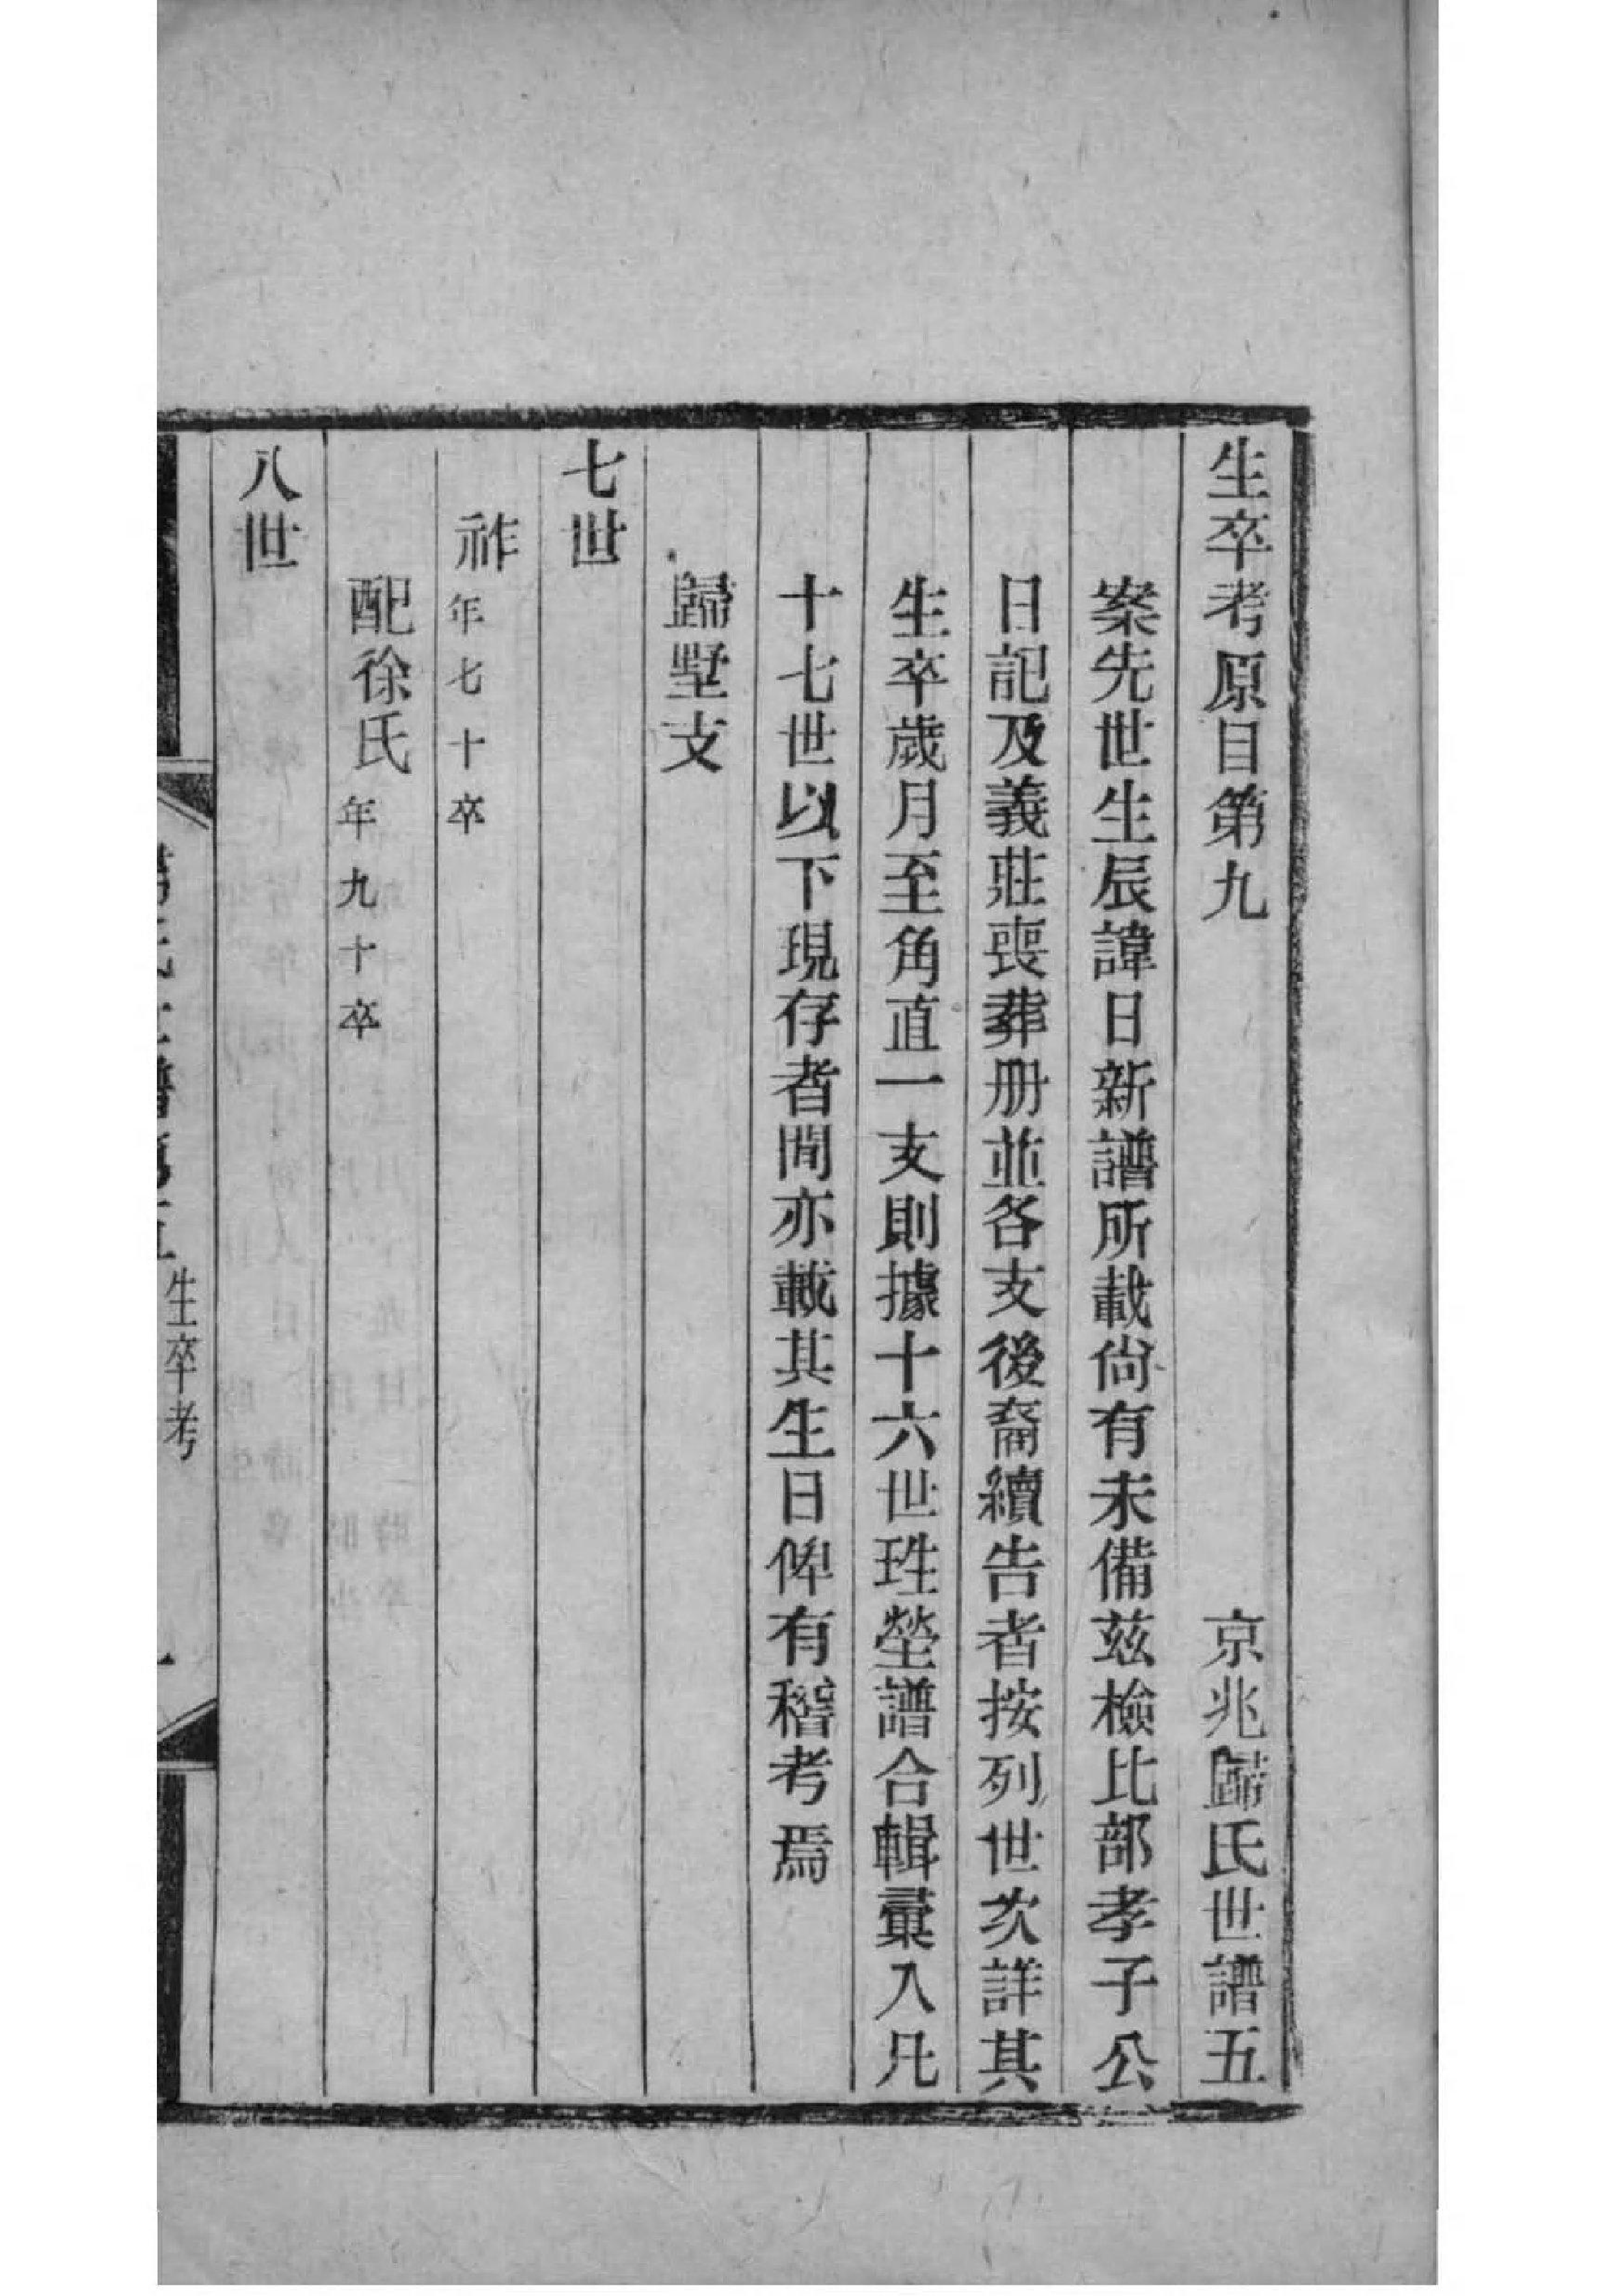 生卒考原目第九　京兆歸氏世譜五
案先世生辰諱日新譜所載尙有未備茲檢比部孝子公
日記及義莊喪葬册並各支後裔續告者按列世次詳其
生卒歲月至角直一支則據十六世珄塋譜合輯彙入凡
十七世以下現存者間亦載其生日俾有稽考焉
歸墅支
七世
祚年七十卒
配徐氏年九十卒
八世
生卒考
一